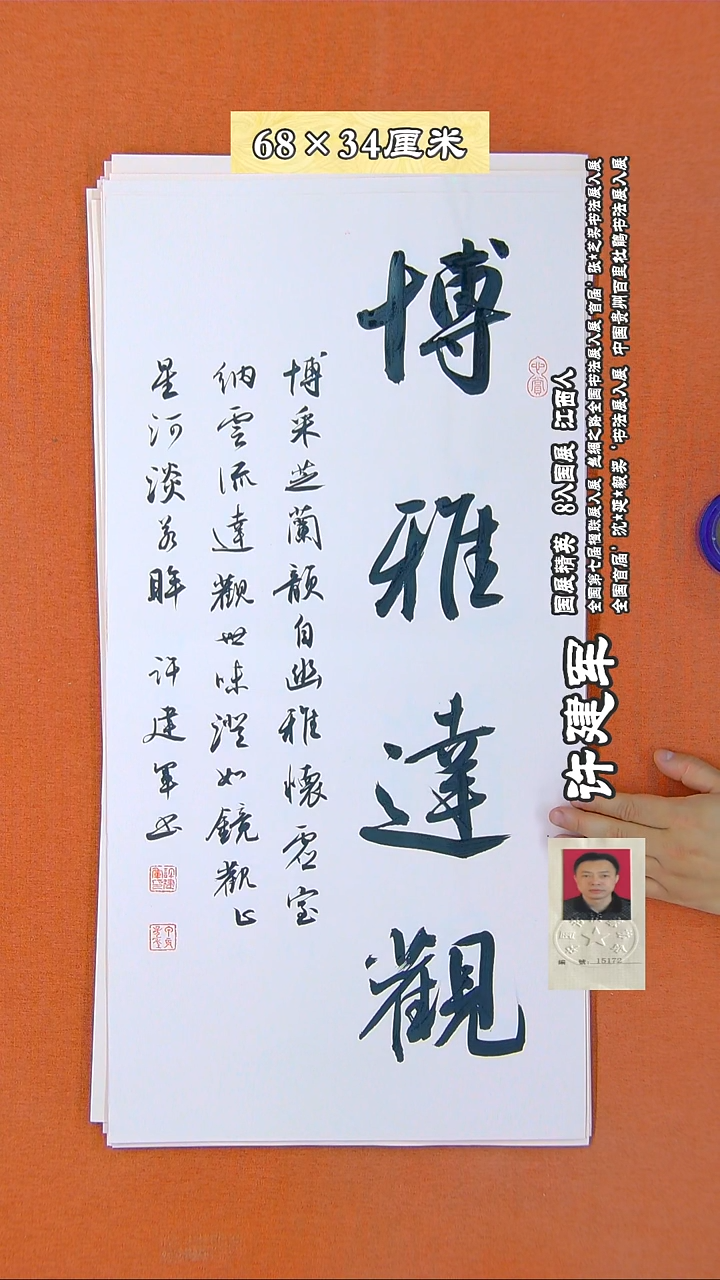 68×34厘米
全国首届'沈★延★毅奖'书法展入展 中国贵州百里杜鹃书法展入展
全国第七届楹联展入展 丝绸之路全国书法展入展 首届"张★芝奖书法展入展
国展精英 8入国展 江西人
许建军
博雅達觀
博采芝蘭韻自幽雅懷虚室
納雲流達觀世味澄如鏡觀止
星河淡若眸 許建軍书
編號:15172